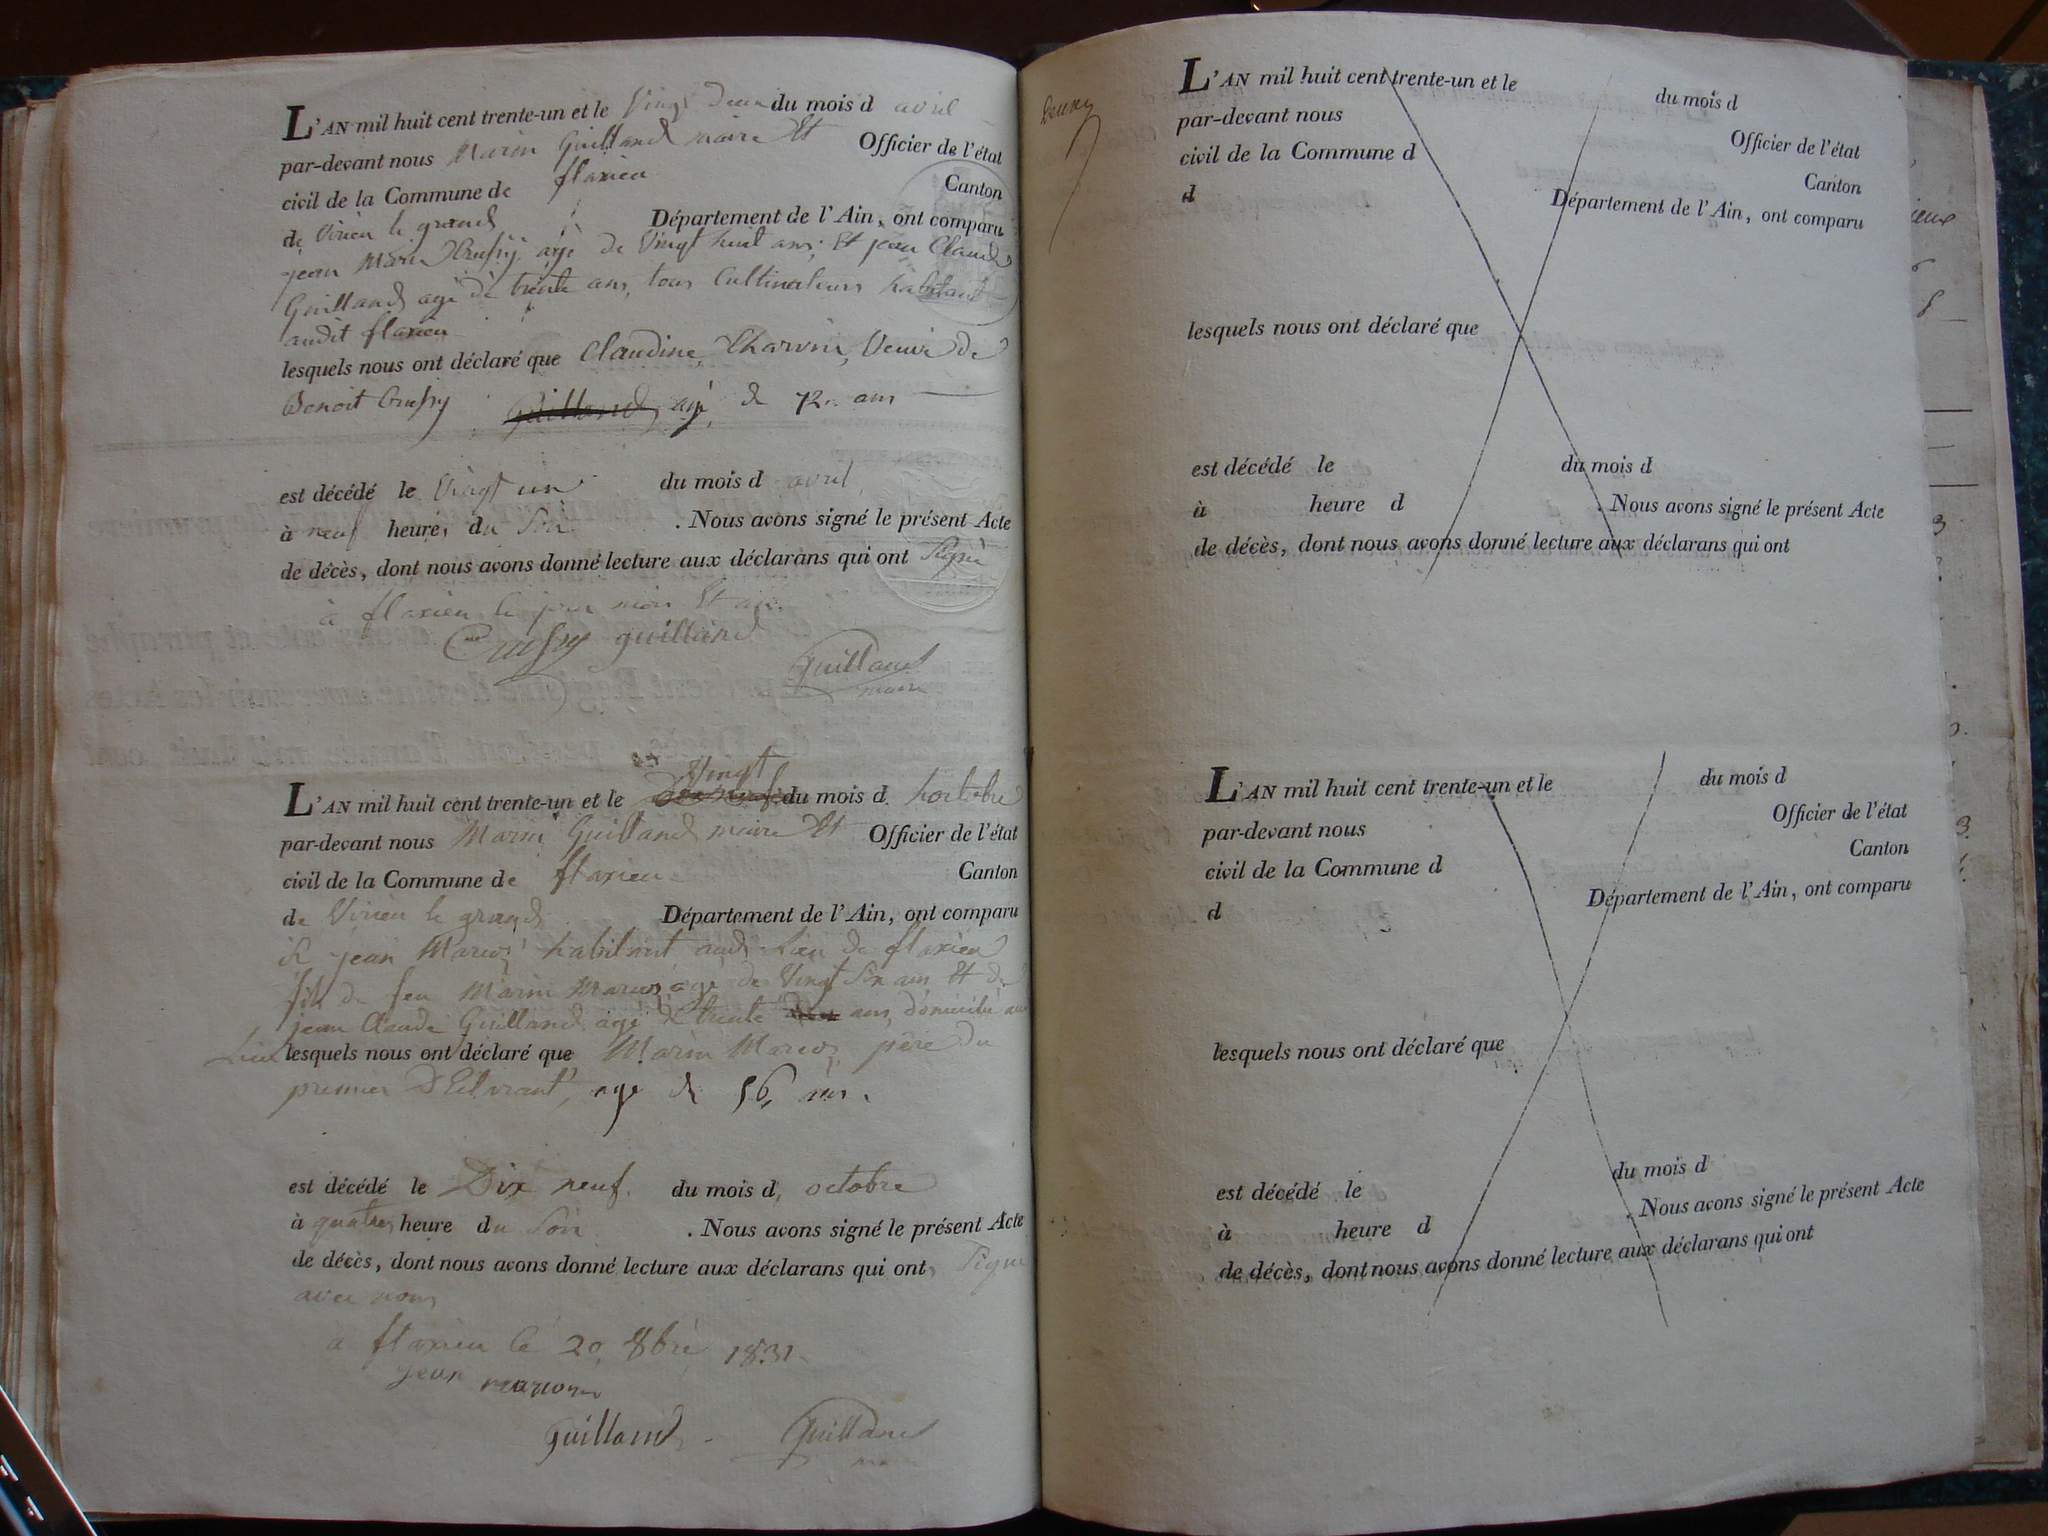 L'AN mil huit cent trente-un et le vingt deux du mois d avril
par-devant nous Marin Guilland maire Et Officier de l'état
civil de la Commune de flaxieu Canton
de Virieu le grand Département de l'Ain, ont comparu
jean Marie Crussy agé de Vingt huit ans, Et jean Claude
Guilland agé de trente ans, tous Cultivateurs habitant
audit flaxieu
lesquels nous ont déclaré que Claudine Veuve de
Benoit Crussy Guilland agé de 72 ans
est décédé le Vingt un du mois d avril
à neuf heures du Soir . Nous avons signé le présent Acte
de décès, dont nous avons donné lecture aux déclarans qui ont Signé
à flaxieu le jour mois Et an
Crussy guilland
Guilland
maire
L'AN mil huit cent trente-un et le Vingt du mois d hoctobre
par-devant nous Marin Guilland maire Et Officier de l'état
civil de la Commune de flaxieu Canton
de Virieu le grand Département de l'Ain, ont comparu
jean habitant aud. Lieu de flaxieu
fils de feu Marin agé de Vingt Six ans Et de
jean Claude Guilland agé de trente ans, domicilié au
Lieu lesquels nous ont déclaré que Marin père du
premier agé de 56 ans.
est décédé le Dix neuf du mois d octobre
à quatre heure du Soir . Nous avons signé le présent Acte
de décès, dont nous avons donné lecture aux déclarans qui ont Signé
avec nous
à flaxieu le 20 8bre 1831
jean
guilland Guilland
L'AN mil huit cent trente-un et le du mois d
par-devant nous Officier de l'état
civil de la Commune d Canton
d Département de l'Ain, ont comparu
lesquels nous ont déclaré que
est décédé le du mois d
à heure d . Nous avons signé le présent Acte
de décès, dont nous avons donné lecture aux déclarans qui ont
L'AN mil huit cent trente-un et le du mois d
par-devant nous Officier de l'état
civil de la Commune d Canton
d Département de l'Ain, ont comparu
lesquels nous ont déclaré que
est décédé le du mois d
à heure d . Nous avons signé le présent Acte
de décès, dont nous avons donné lecture aux déclarans qui ont